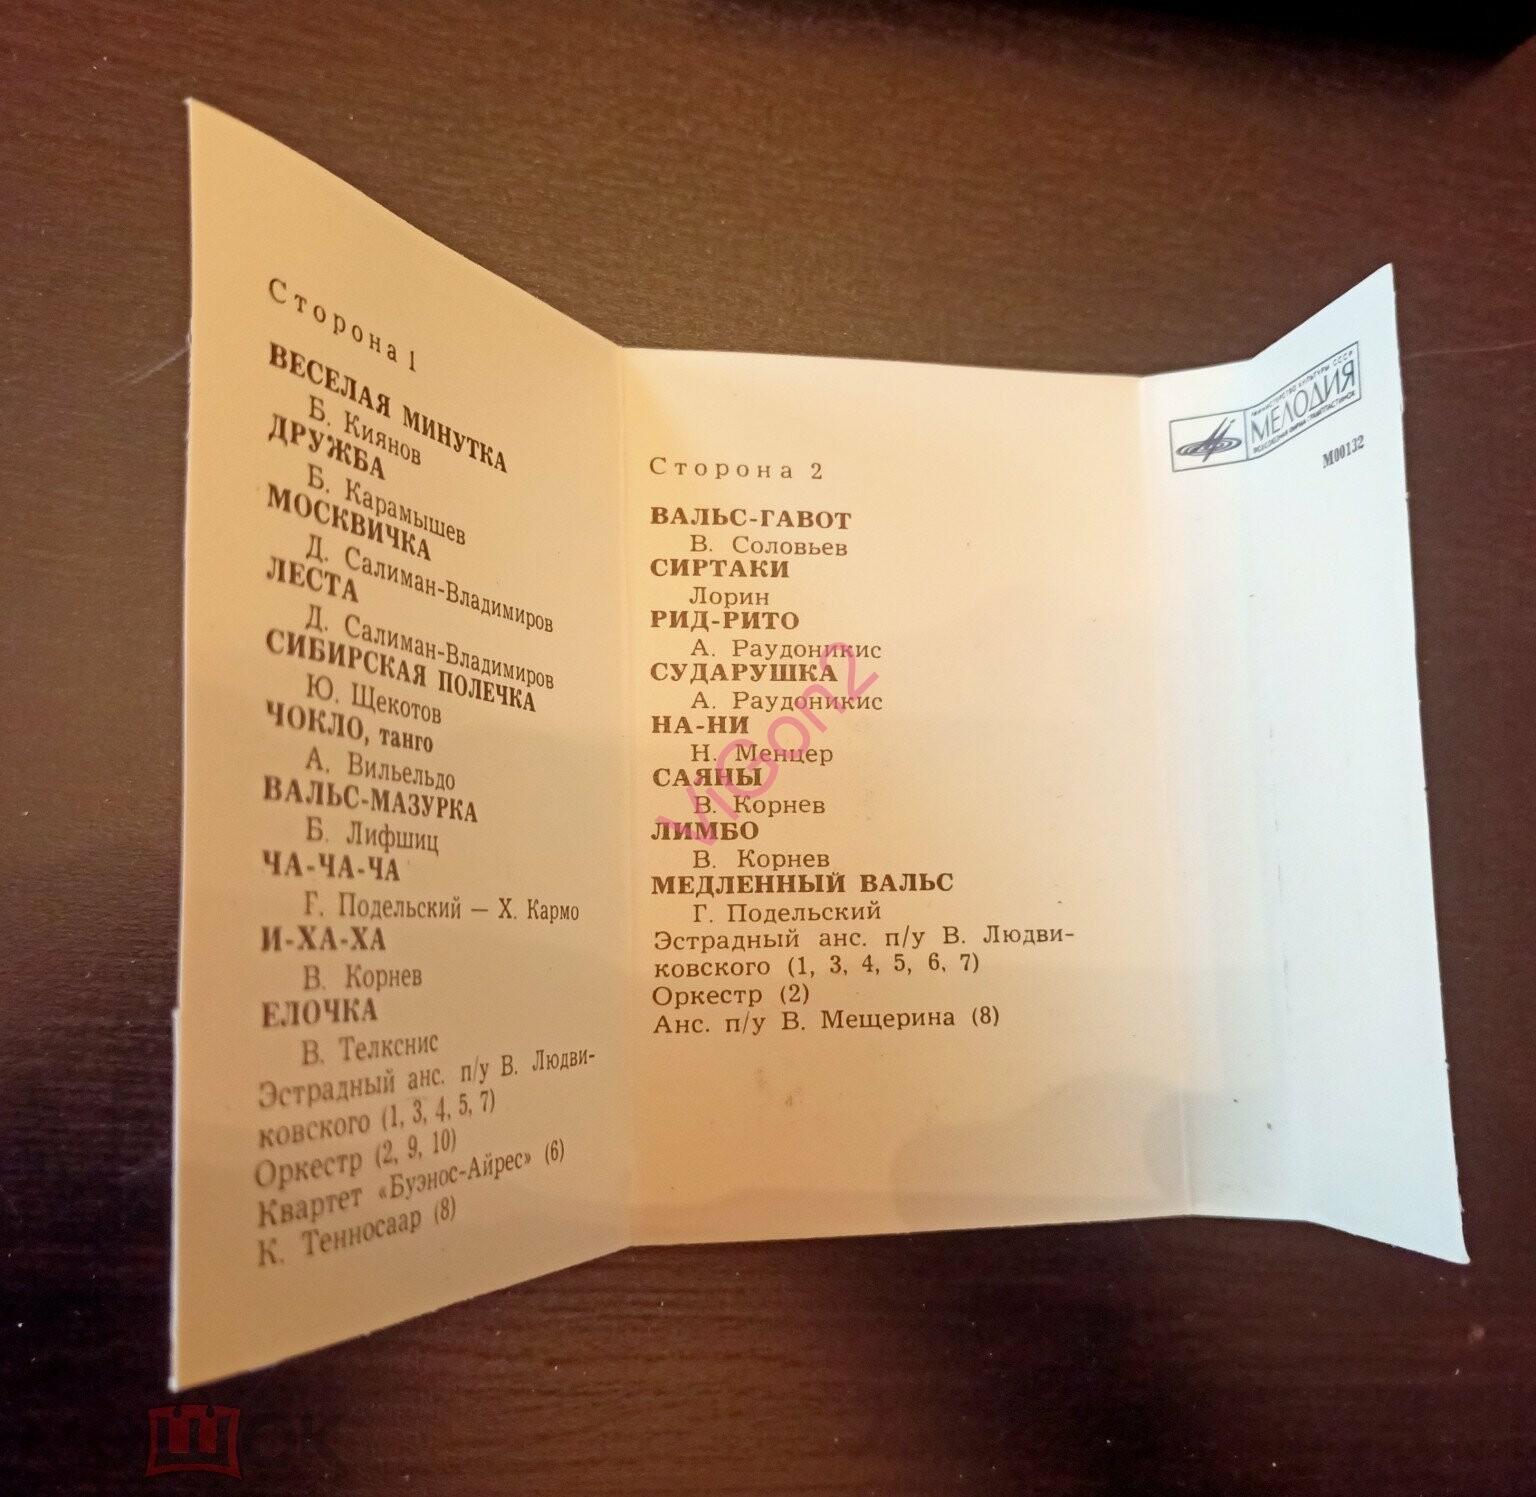 Сторона 1
ВЕСЕЛАЯ МИНУТКА
Б. Киянов
ДРУЖБА
Б. Карамышев
МОСКВИЧКА
Д. Салиман-Владимиров
ЛЕСТА
Д. Салиман-Владимиров
СИБИРСКАЯ ПОЛЕЧКА
Ю. Щекотов
ЧОКЛО, танго
А. Вильельдо
ВАЛЬС-МАЗУРКА
Б. Лифшиц
ЧА-ЧА-ЧА
Г. Подельский — Х. Кармо
И-ХА-ХА
В. Корнев
ЕЛОЧКА
В. Телкснис
Эстрадный анс. п/у В. Людви-
ковского (1, 3, 4, 5, 7)
Оркестр (2, 9, 10)
Квартет «Буэнос-Айрес» (6)
К. Тенносаар (8)
Сторона 2
ВАЛЬС-ГАВОТ
В. Соловьев
СИРТАКИ
Лорин
РИД-РИТО
А. Раудоникис
СУДАРУШКА
А. Раудоникис
НА-НИ
Н. Менцер
САЯНЫ
В. Корнев
ЛИМБО
В. Корнев
МЕДЛЕННЫЙ ВАЛЬС
Г. Подельский
Эстрадный анс. п/у В. Людви-
ковского (1, 3, 4, 5, 6, 7)
Оркестр (2)
Анс. п/у В. Мещерина (8)
МИНИСТЕРСТВО КУЛЬТУРЫ СССР
МЕЛОДИЯ
ВСЕСОЮЗНАЯ ФИРМА ГРАМПЛАСТИНОК
М00132
ViGon2